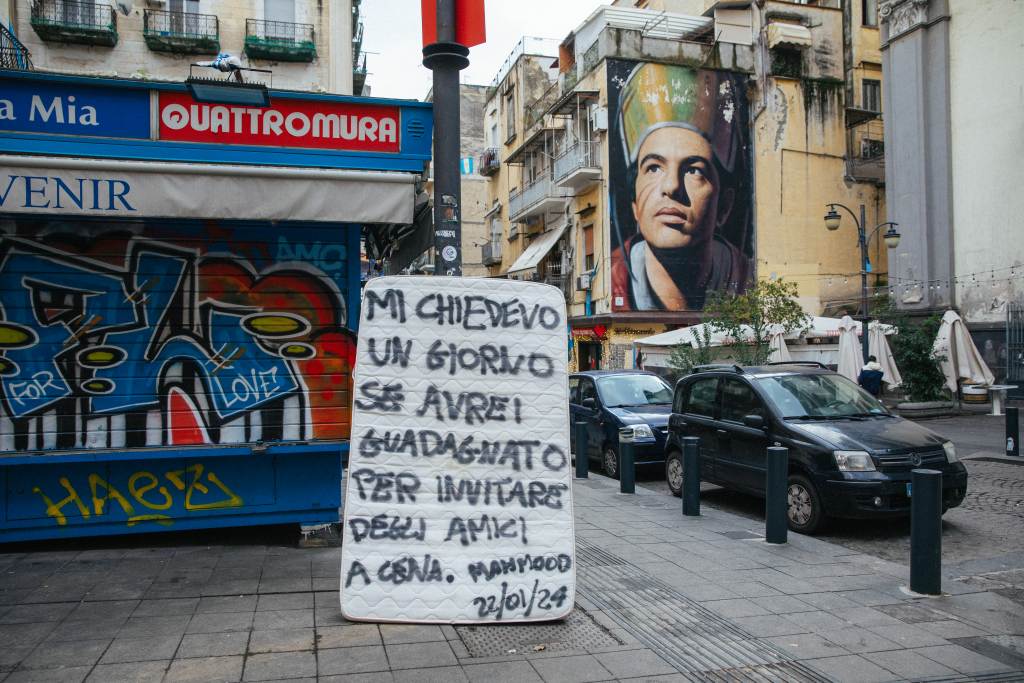 a Mia
QUATTROMURA
VENIR
AMO
FOR
LOVE
HAEZ
MI CHIEDEVO
UN GIORNO
SE AVREI
GUADAGNATO
PER INVITARE
DEGLI AMICI
A CENA. MAHMOOD
22/01/24